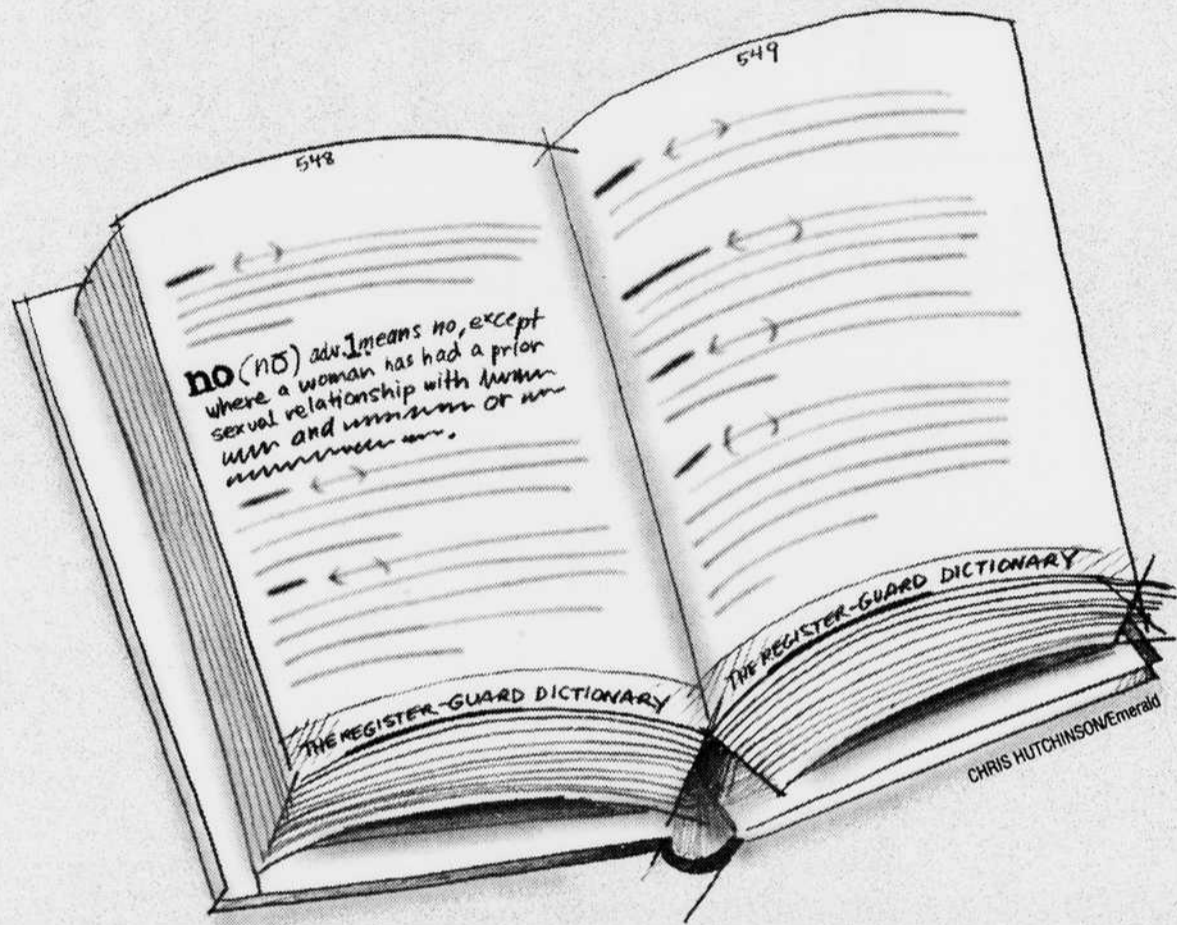 548
no (nō) adv. 1 means no, except
where a woman has had a prior
sexual relationship with
and or
THE REGISTER-GUARD DICTIONARY
549
THE REGISTER-GUARD DICTIONARY
CHRIS HUTCHINSON/Emerald